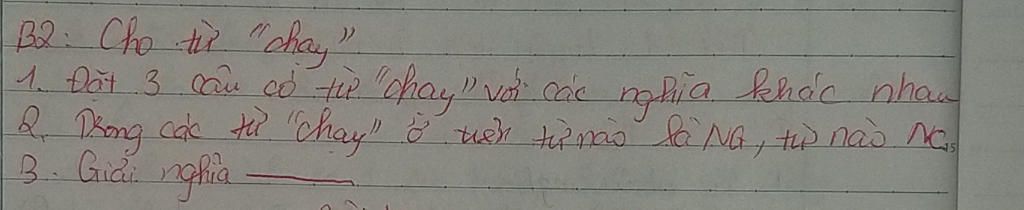 B2: Cho từ "chạy"
1. Đặt 3 câu có từ "chạy" với các nghĩa khác nhau
2. Trong các từ "chạy" ở trên từ nào là NG, từ nào NC
3. Giải nghĩa